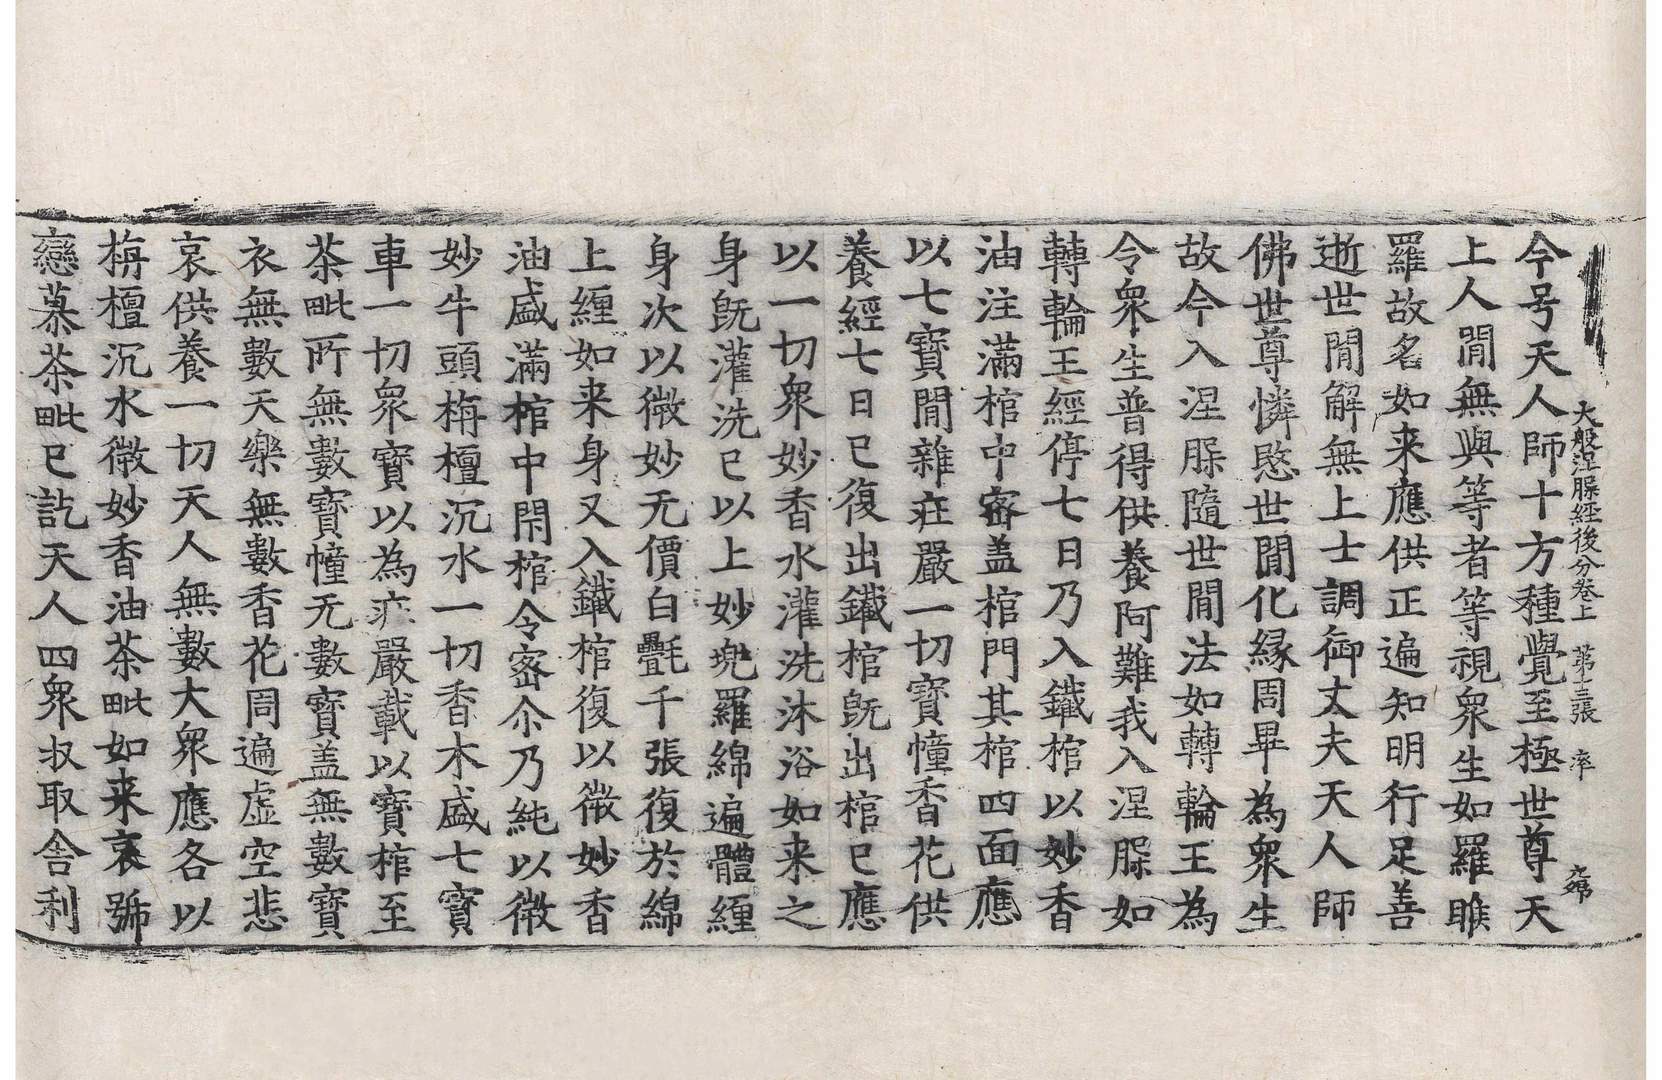 大般涅脲經後分卷上 第十三張 率
今号天人師十方種覺至極世尊天
上人閒無與等者等視衆生如羅睺
羅故名如来應供正遍知明行足善
逝世閒解無上士調御丈夫天人師
佛世尊憐愍世閒化縁周畢為衆生
故今入涅脲隨世閒法如轉輪王為
令衆生普得供養阿難我入涅脲如
轉輪王經停七日乃入鐵棺以妙香
油注滿棺中密盖棺門其棺四面應
以七寶閒雜疘嚴一切寶幢香花供
養經七日已復出鐵棺旣出棺已應
以一切衆妙香水灌洗沐浴如来之
身旣灌洗已以上妙兜羅綿遍體纏
身次以微妙无價白㲲千張復於綿
上纏如来身又入鐵棺復以微妙香
油盛滿棺中閇棺令密尒乃純以微
妙牛頭栴檀沉水一切香木盛七寶
車一切衆寶以為疘嚴載以寶棺至
茶毗所無數寶幢无數寶盖無數寶
衣無數天樂無數香花周遍虛空悲
哀供養一切天人無數大衆應各以
栴檀沉水微妙香油茶毗如来哀號
戀慕茶毗已訖天人四衆収取舎利